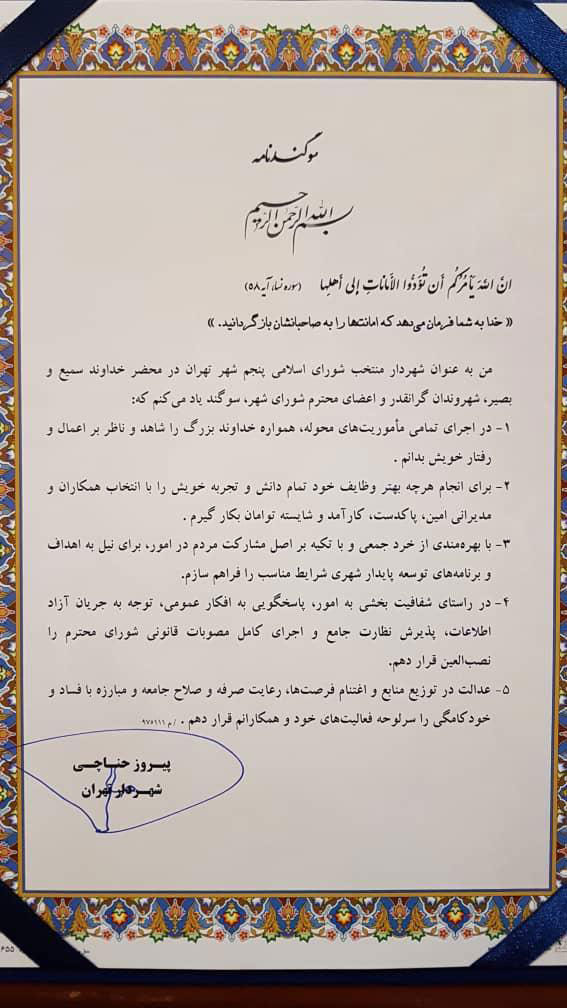 سوگندنامه
بسم الله الرحمن الرحیم
انَّ اللهَ یَأمُرُکُم أَن تُؤَدُّوا الأَماناتِ إلی أَهلِها (سوره نساء آیه ۵۸)
« خدا به شما فرمان می‌دهد که امانت‌ها را به صاحبانشان بازگردانید. »
من به عنوان شهردار منتخب شورای اسلامی پنجم شهر تهران در محضر خداوند سمیع و
بصیر، شهروندان گرانقدر و اعضای محترم شورای شهر، سوگند یاد می‌کنم که:
۱- در اجرای تمامی مأموریت‌های محوله، همواره خداوند بزرگ را شاهد و ناظر بر اعمال و
رفتار خویش بدانم .
۲- برای انجام هرچه بهتر وظایف خود تمام دانش و تجربه خویش را با انتخاب همکاران و
مدیرانی امین، پاکدست، کارآمد و شایسته توامان بکار گیرم .
۳- با بهره‌مندی از خرد جمعی و با تکیه بر اصل مشارکت مردم در امور، برای نیل به اهداف
و برنامه‌های توسعه پایدار شهری شرایط مناسب را فراهم سازم.
۴- در راستای شفافیت بخشی به امور، پاسخگویی به افکار عمومی، توجه به جریان آزاد
اطلاعات، پذیرش نظارت جامع و اجرای کامل مصوبات قانونی شورای محترم را
نصب‌العین قرار دهم.
۵- عدالت در توزیع منابع و اغتنام فرصت‌ها، رعایت صرفه و صلاح جامعه و مبارزه با فساد و
خودکامگی را سرلوحه فعالیت‌های خود و همکارانم قرار دهم . /م ۹۷۵۱۱۱
پیروز حناچی
شهردار تهران